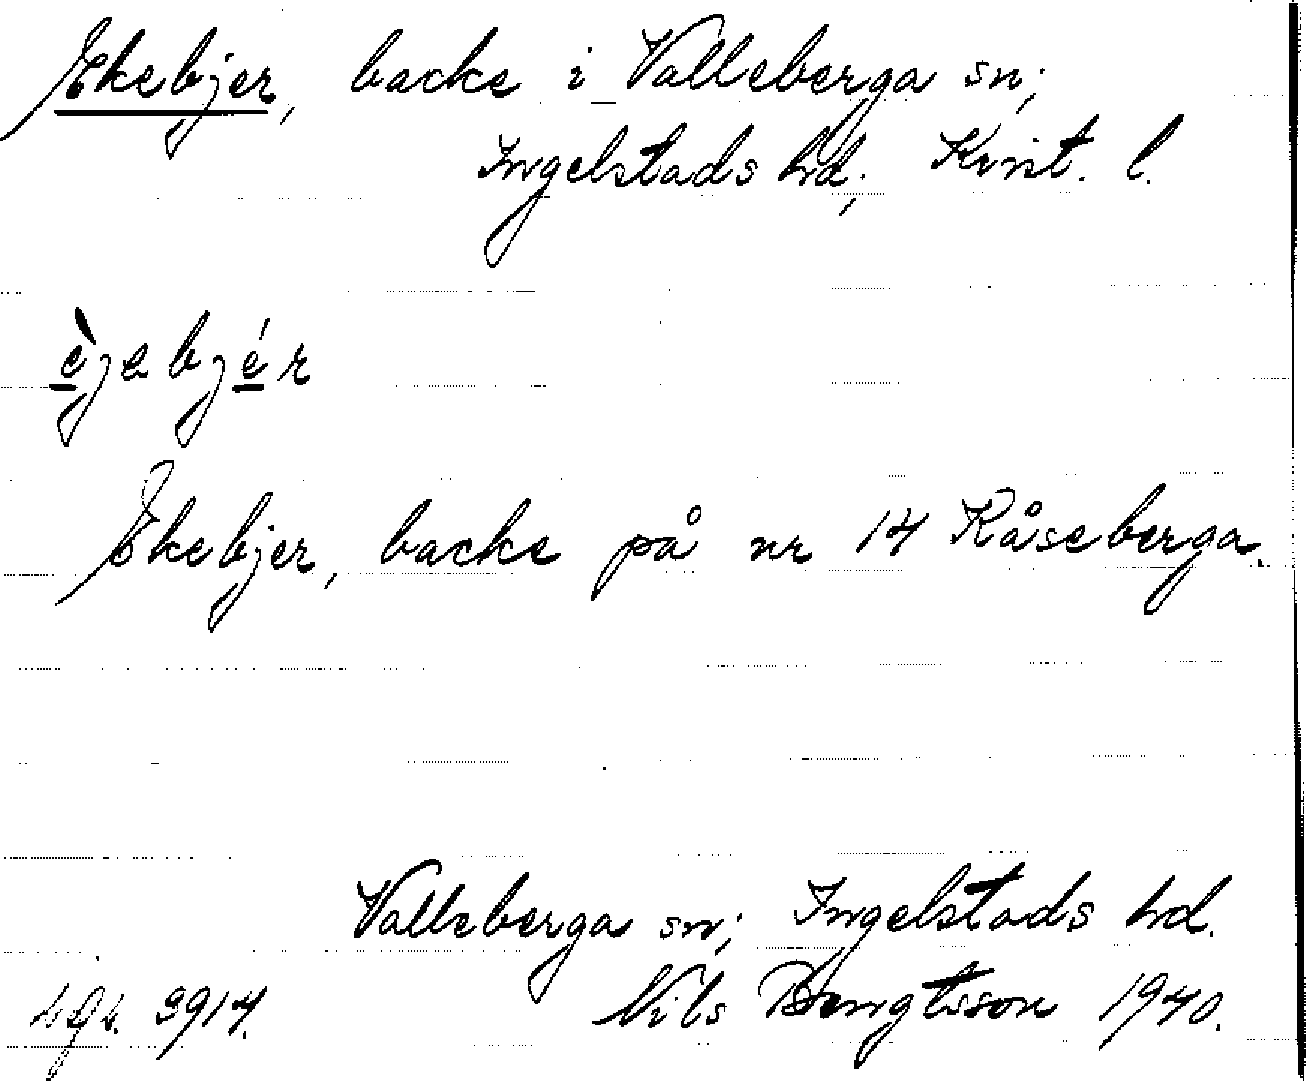 Ekebjer, backe i Valleberga sn;
Ingelstads hd; Krist. l.
èjebjér
Ekebjer, backe på nr 14 Kåseberga.
Valleberga sn; Ingelstads hd.
3914. Nils Bengtsson 1940.